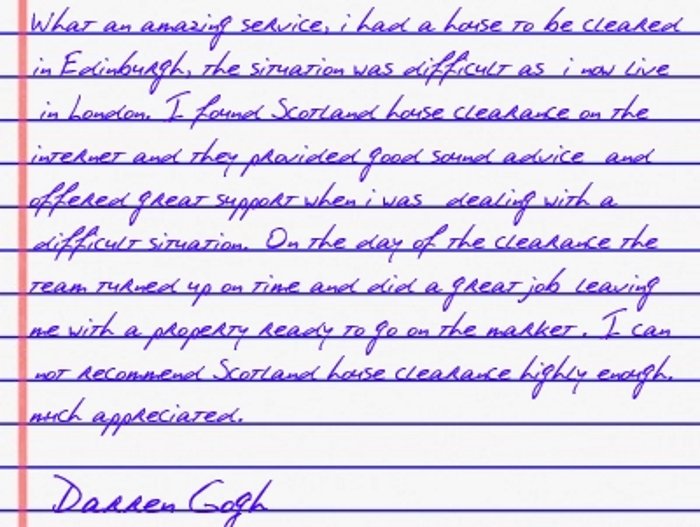 What an amazing service, i had a house to be cleared
in Edinburgh, the situation was difficult as i now live
in London. I found Scotland house clearance on the
internet and they provided good sound advice and
offered great support when i was dealing with a
difficult situation. On the day of the clearance the
team turned up on time and did a great job leaving
me with a property ready to go on the market. I can
not recommend Scotland house clearance highly enough.
much appreciated.
Darren Gogh